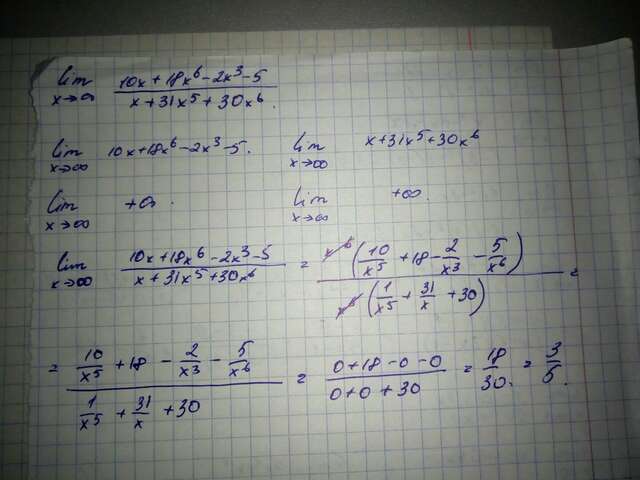 lim x→∞ (10x+18x⁶-2x³-5)/(x+31x⁵+30x⁶)
lim x→∞ 10x+18x⁶-2x³-5. lim x→∞ x+31x⁵+30x⁶
lim x→∞ +∞. lim x→∞ +∞.
lim x→∞ (10x+18x⁶-2x³-5)/(x+31x⁵+30x⁶) = x⁶(10/x⁵+18-2/x³-5/x⁶)/x⁶(1/x⁵+31/x+30) =
= (10/x⁵+18-2/x³-5/x⁶)/(1/x⁵+31/x+30) = (0+18-0-0)/(0+0+30) = 18/30. = 3/5.